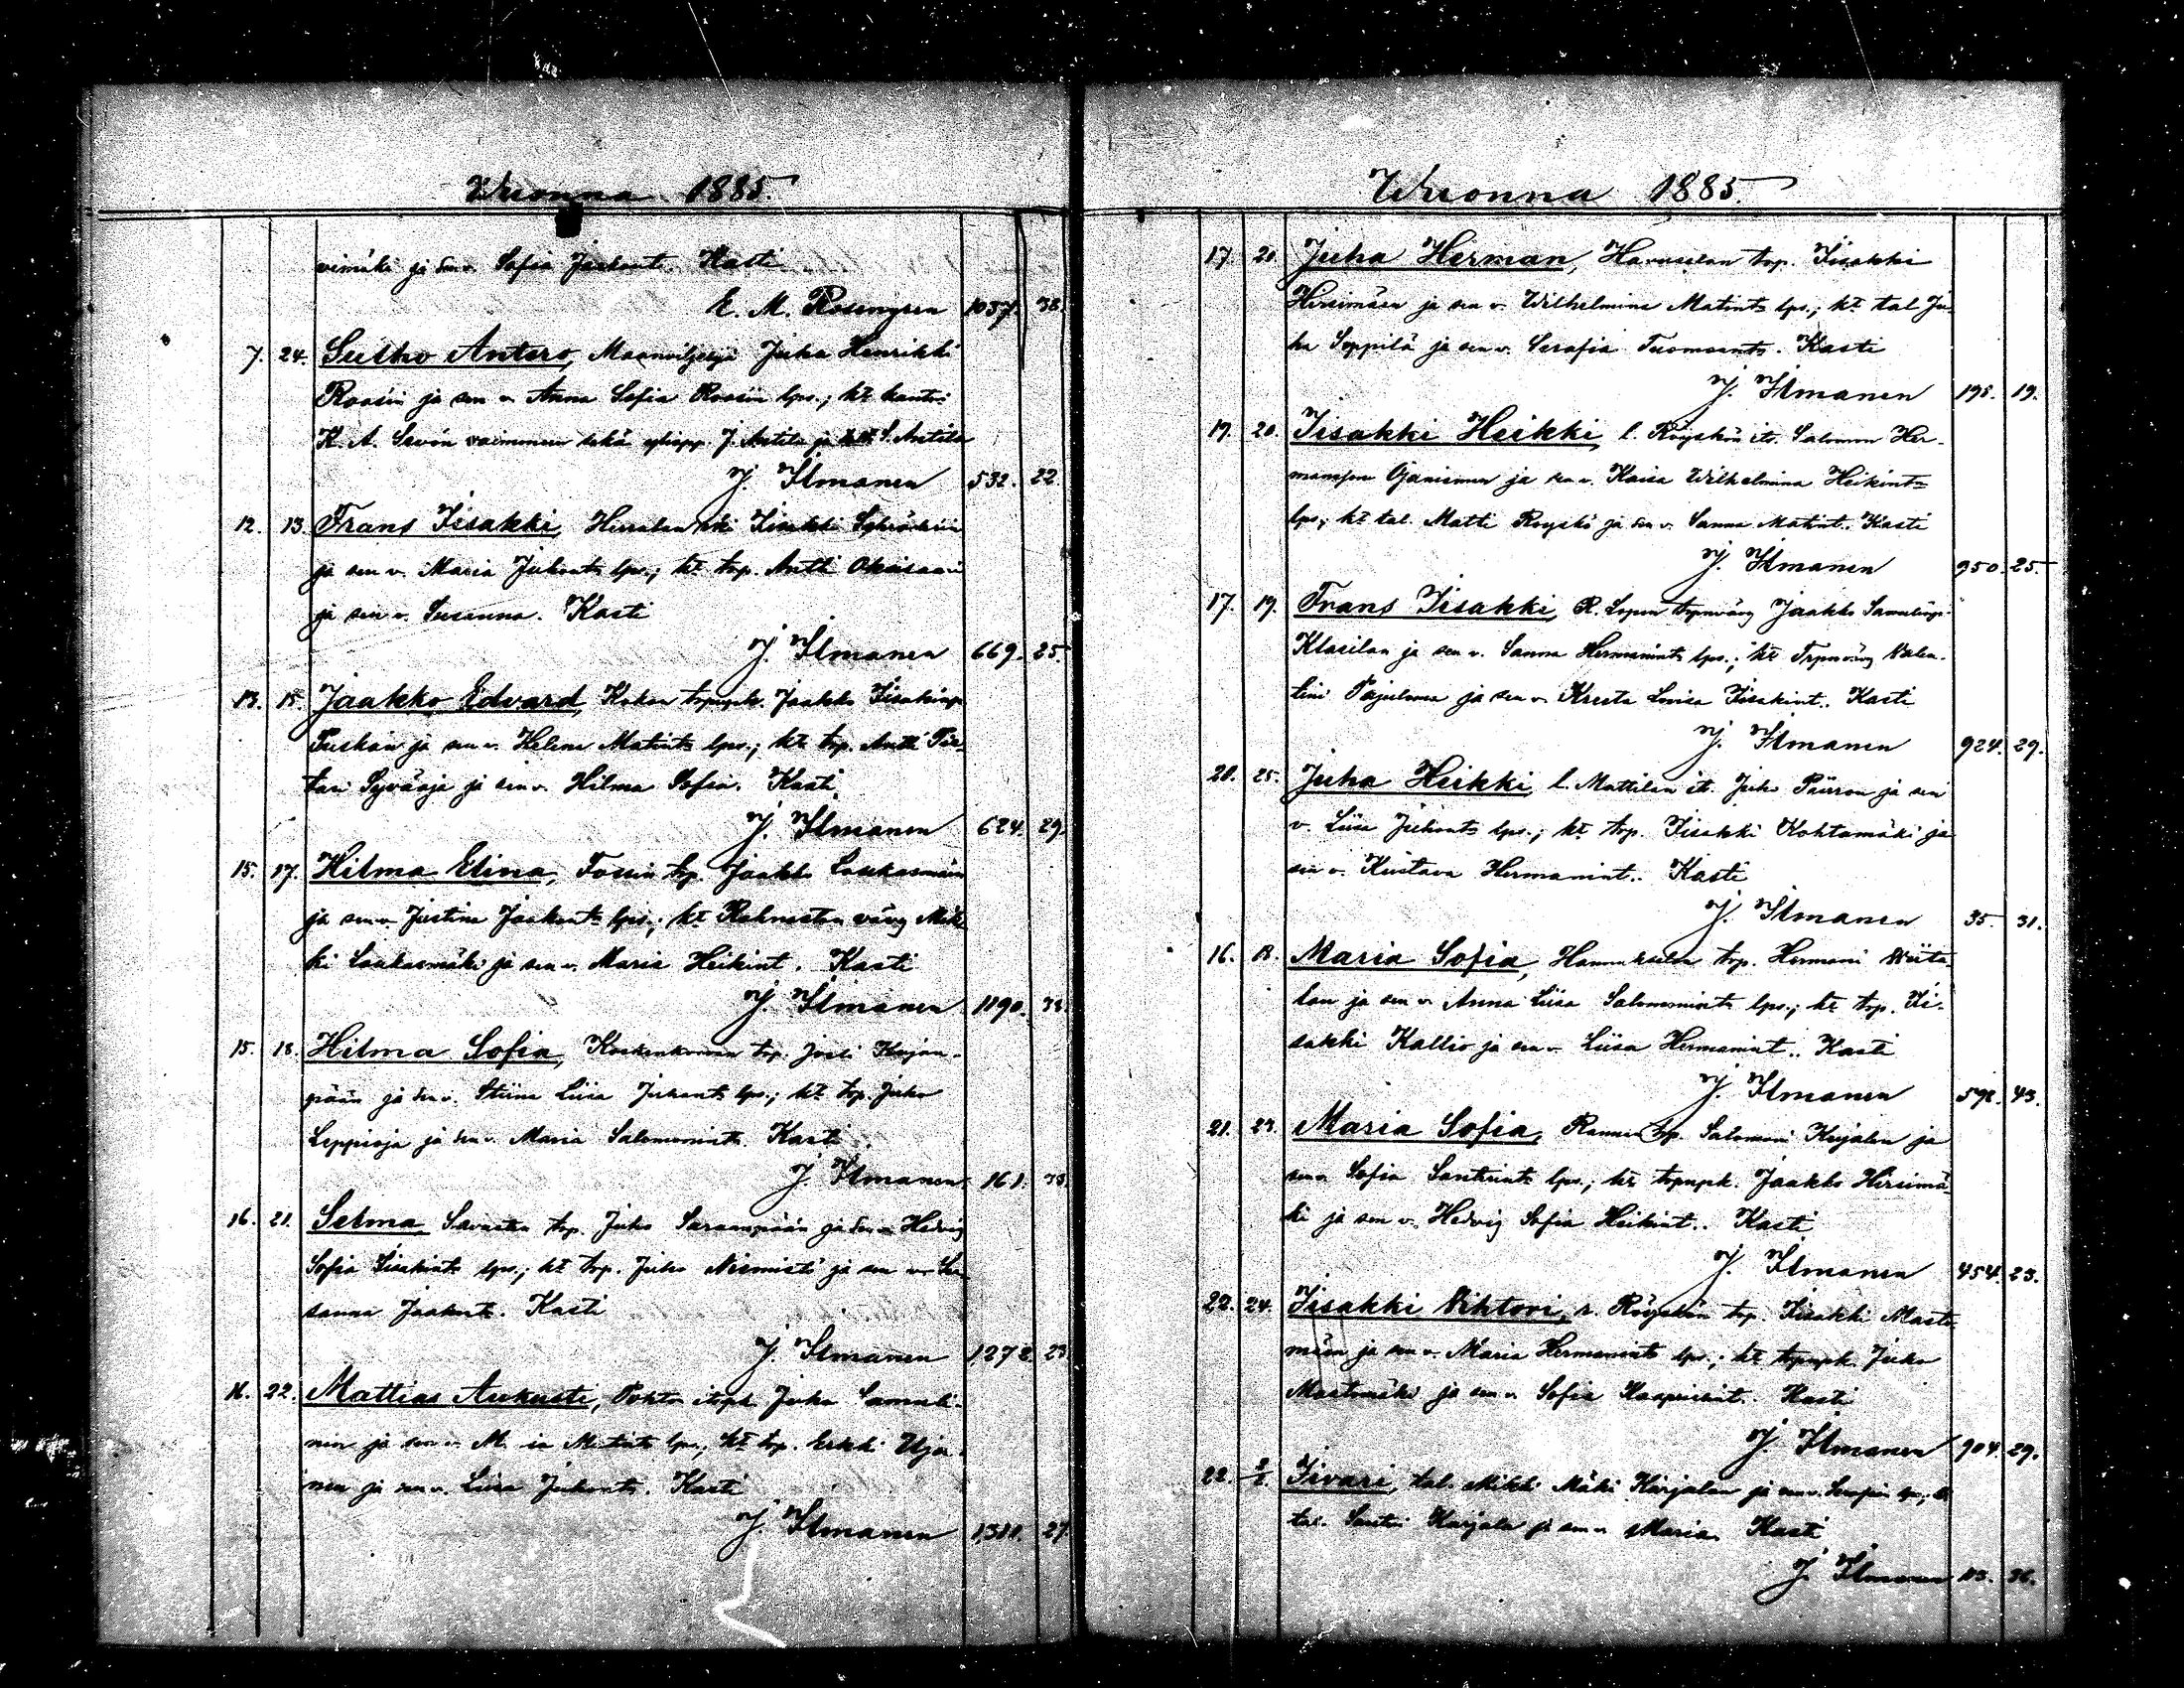 Wuonna 1885.
vimäki ja sen v. Sofia Juhont. Kasti
E. M. Rosengren 1037. 38.
7. 24. Suisko Antero, Maanviljeliä Juha Henrikki
Roosin ja sen v. Anna Sofia Roosin lps.; kt kantt.
K. A. Savón vaimoneen sekä yliopp. J. Antila ja S. Antila
J. Ilmanen 532. 22
12. 13. Frans Iisakki, Iisakki
ja sen v. Maria Juhont. lps.; kt trp. Antti Oksasaari
ja sen v. Susanna. Kasti
J. Ilmanen 669. 25.
13. 15. Jaakko Edvard, Kokon trpnpk. Jaakko Iisakinp.
Puskan ja sen v. Helena Matint. lps.; kt trp. Antti
Syväoja ja sen v. Hilma Sofia. Kasti
J. Ilmanen 624. 29.
15. 17. Hilma Elina, Fossin trp. Jaakko Laukasmäen
ja sen v. Justina Jaakont. lps.; kt väv. Mik-
ki Laukasmäki ja sen v. Maria Heikint. Kasti
J. Ilmanen 1190. 38.
15. 18. Hilma Sofia, Koskenkorvan trp. Josli Karjan-
pään ja sen v. Stiina Liisa Juhont. lps.; kt trp. Juho
Leppioja ja sen v. Maria Salomonint. Kasti
J. Ilmanen 161. 38.
16. 21. Selma Savuston trp. Juho Saraanpään ja sen v. Hedvig
Sofia Iisakint. lps.; kt trp. Juho Niemistö ja sen v. Su-
sanna Jaakont. Kasti
J. Ilmanen 1272. 23
16. 22. Mattias Aukusti, Pohto Juha Samuli-
nin ja sen v. Matint. lps.; kt trp. Erkki Oja-
nen ja sen v. Liisa Juhont. Kasti
J. Ilmanen 1311. 27
Wuonna 1885.
17. 20. Juha Herman, Hanuselan trp. Iisakki
Hirsimäen ja sen v. Wilhelmina Matint. lps.; kt tal. Ju-
ha Soppilä ja sen v. Serafia Tuomaant. Kasti
J. Ilmanen 195. 19.
19. 20. Iisakki Heikki, l. Röyskön it. Salomon Her-
manpon Ojaniemen ja sen v. Kaisa Wilhelmina Heikint.
lps.; kt tal. Matti Röyskö ja sen v. Sanna Matint. Kasti
J. Ilmanen 950. 25.
17. 19. Frans Iisakki, R. Lopen trpnväv. Jaakko Samulinp.
Klasilan ja sen v. Sanna Hermanint. lps.; kt Trpnväv. Valen-
tini Pajuluoma ja sen v. Kreeta Lovisa Iisakint. Kasti
J. Ilmanen 924. 29.
20. 25. Juha Heikki, l. Mattilan it. Juho Päärron ja sen
v. Liisa Juhont. lps.; kt trp. Iisakki Kohtamäki ja
sen v. Kustava Hermanint. Kasti
J. Ilmanen 35. 31.
16. 18. Maria Sofia, Hannukselan trp. Hermani Wiita-
lan ja sen v. Anna Liisa Salomonint. lps.; kt trp. Ii-
sakki Kallio ja sen v. Liisa Hermanint. Kasti
J. Ilmanen 598. 43.
21. 23. Maria Sofia, Rannon trp. Salomoni Kujalan ja
sen v. Sofia Santrint. lps.; kt trpnpk. Jaakko Hirsimä-
ki ja sen v. Hedvig Sofia Heikint. Kasti
J. Ilmanen 454. 23.
22. 24. Iisakki Viktori, r. Röyskön trp. Iisakki Masto-
mäen ja sen v. Maria Hermanint. lps.; kt trpnpk. Juho
Mastomäki ja sen v. Sofia Kaapriint. Kasti
J. Ilmanen 904. 29.
22. 2/2. Iivari, tal. Mikki Mäki Karjalan ja sen v. Serafian lps.; kt
tal. Santeri Karjala ja sen v. Maria. Kasti
J. Ilmanen 113. 36.